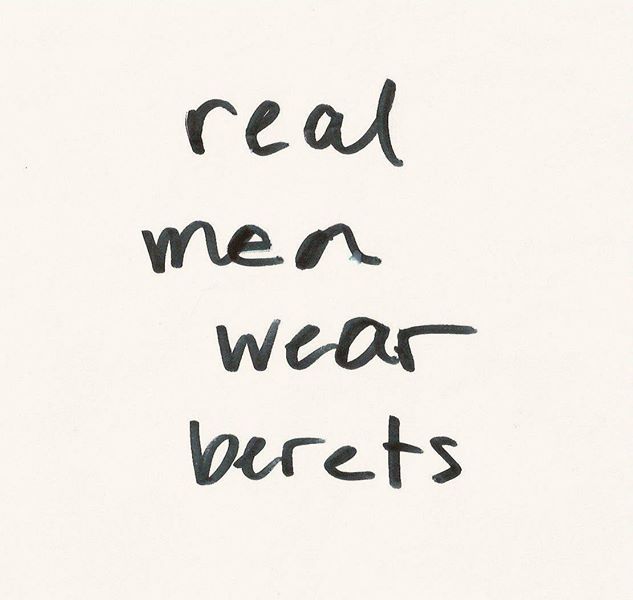 real
men
wear
berets